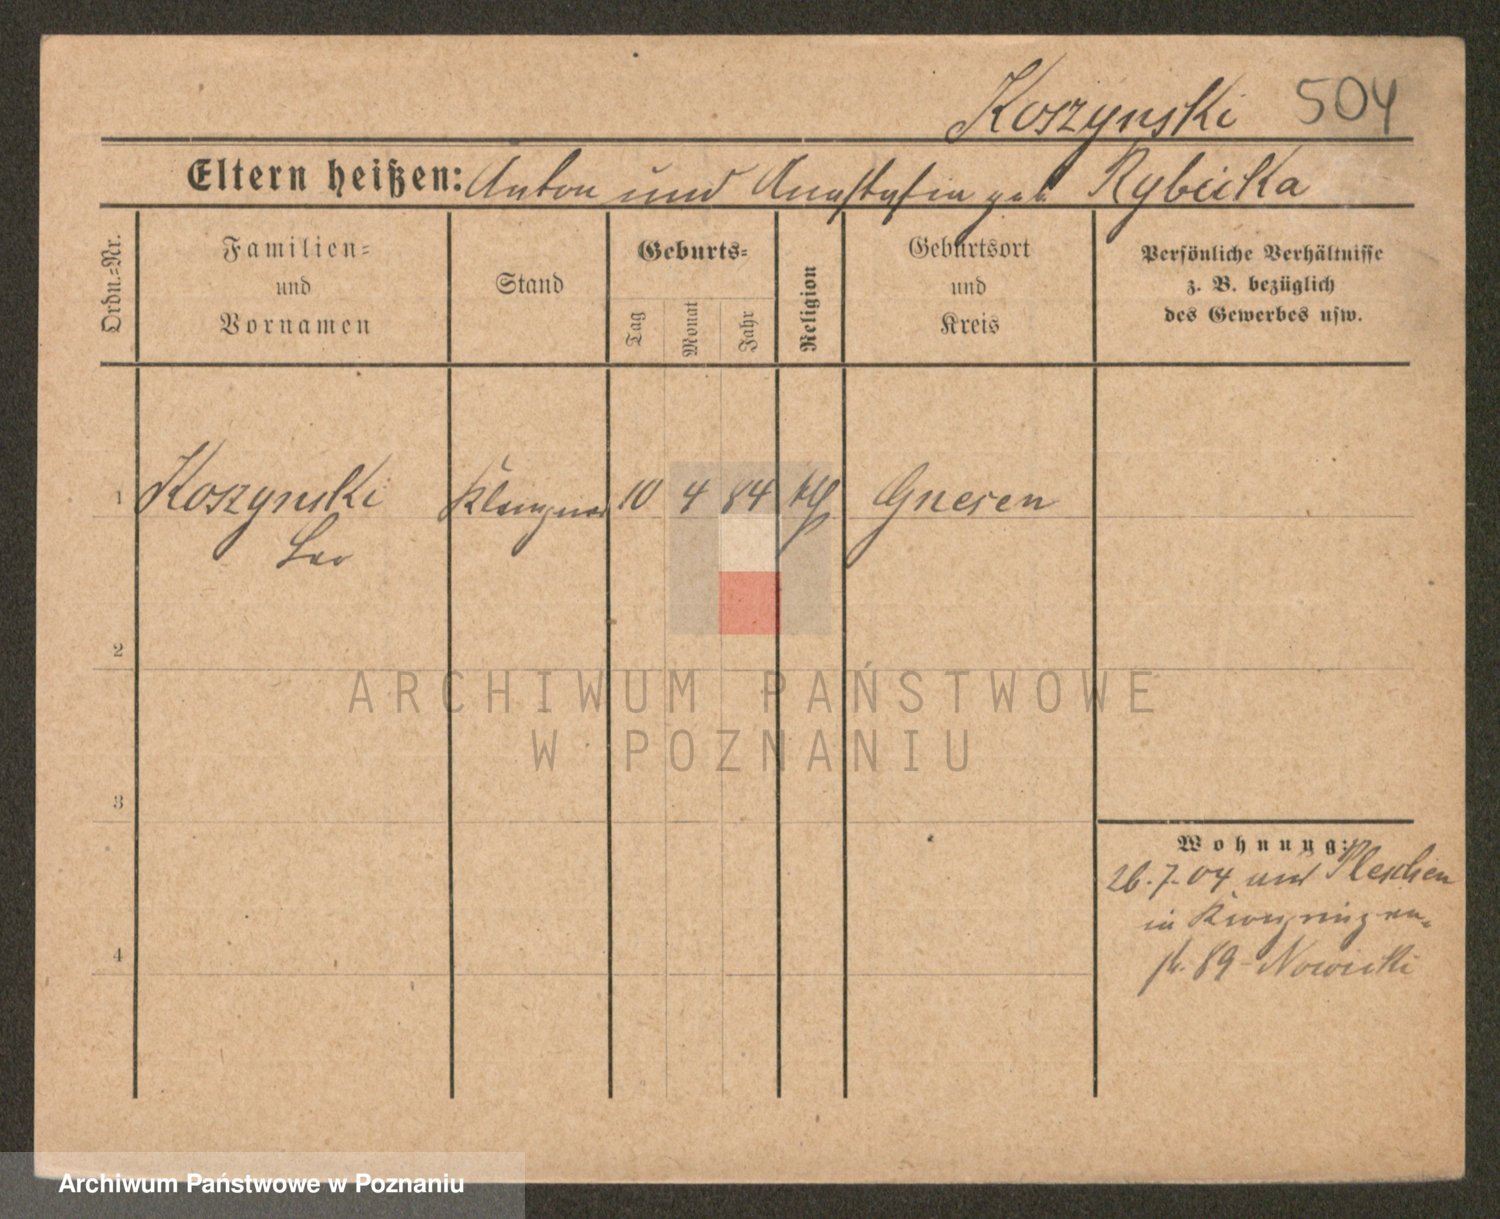 Koszynski 504
Eltern heißen: Anton und Anastasia geb. Rybicka
Ordn.=Nr.
Familien=
und
Vornamen
Stand
Geburts=
Tag
Monat
Jahr
Religion
Geburtsort
und
Kreis
Persönliche Verhältnisse
z. B. bezüglich
des Gewerbes usw.
1 Koszynski Klempner 10 4 84 kth Gnesen
Leo
2
3
4
Wohnung:
26.7.04 aus Pleschen
in
89 - Nowicki
ARCHIWUM PAŃSTWOWE
W POZNANIU
Archiwum Państwowe w Poznaniu